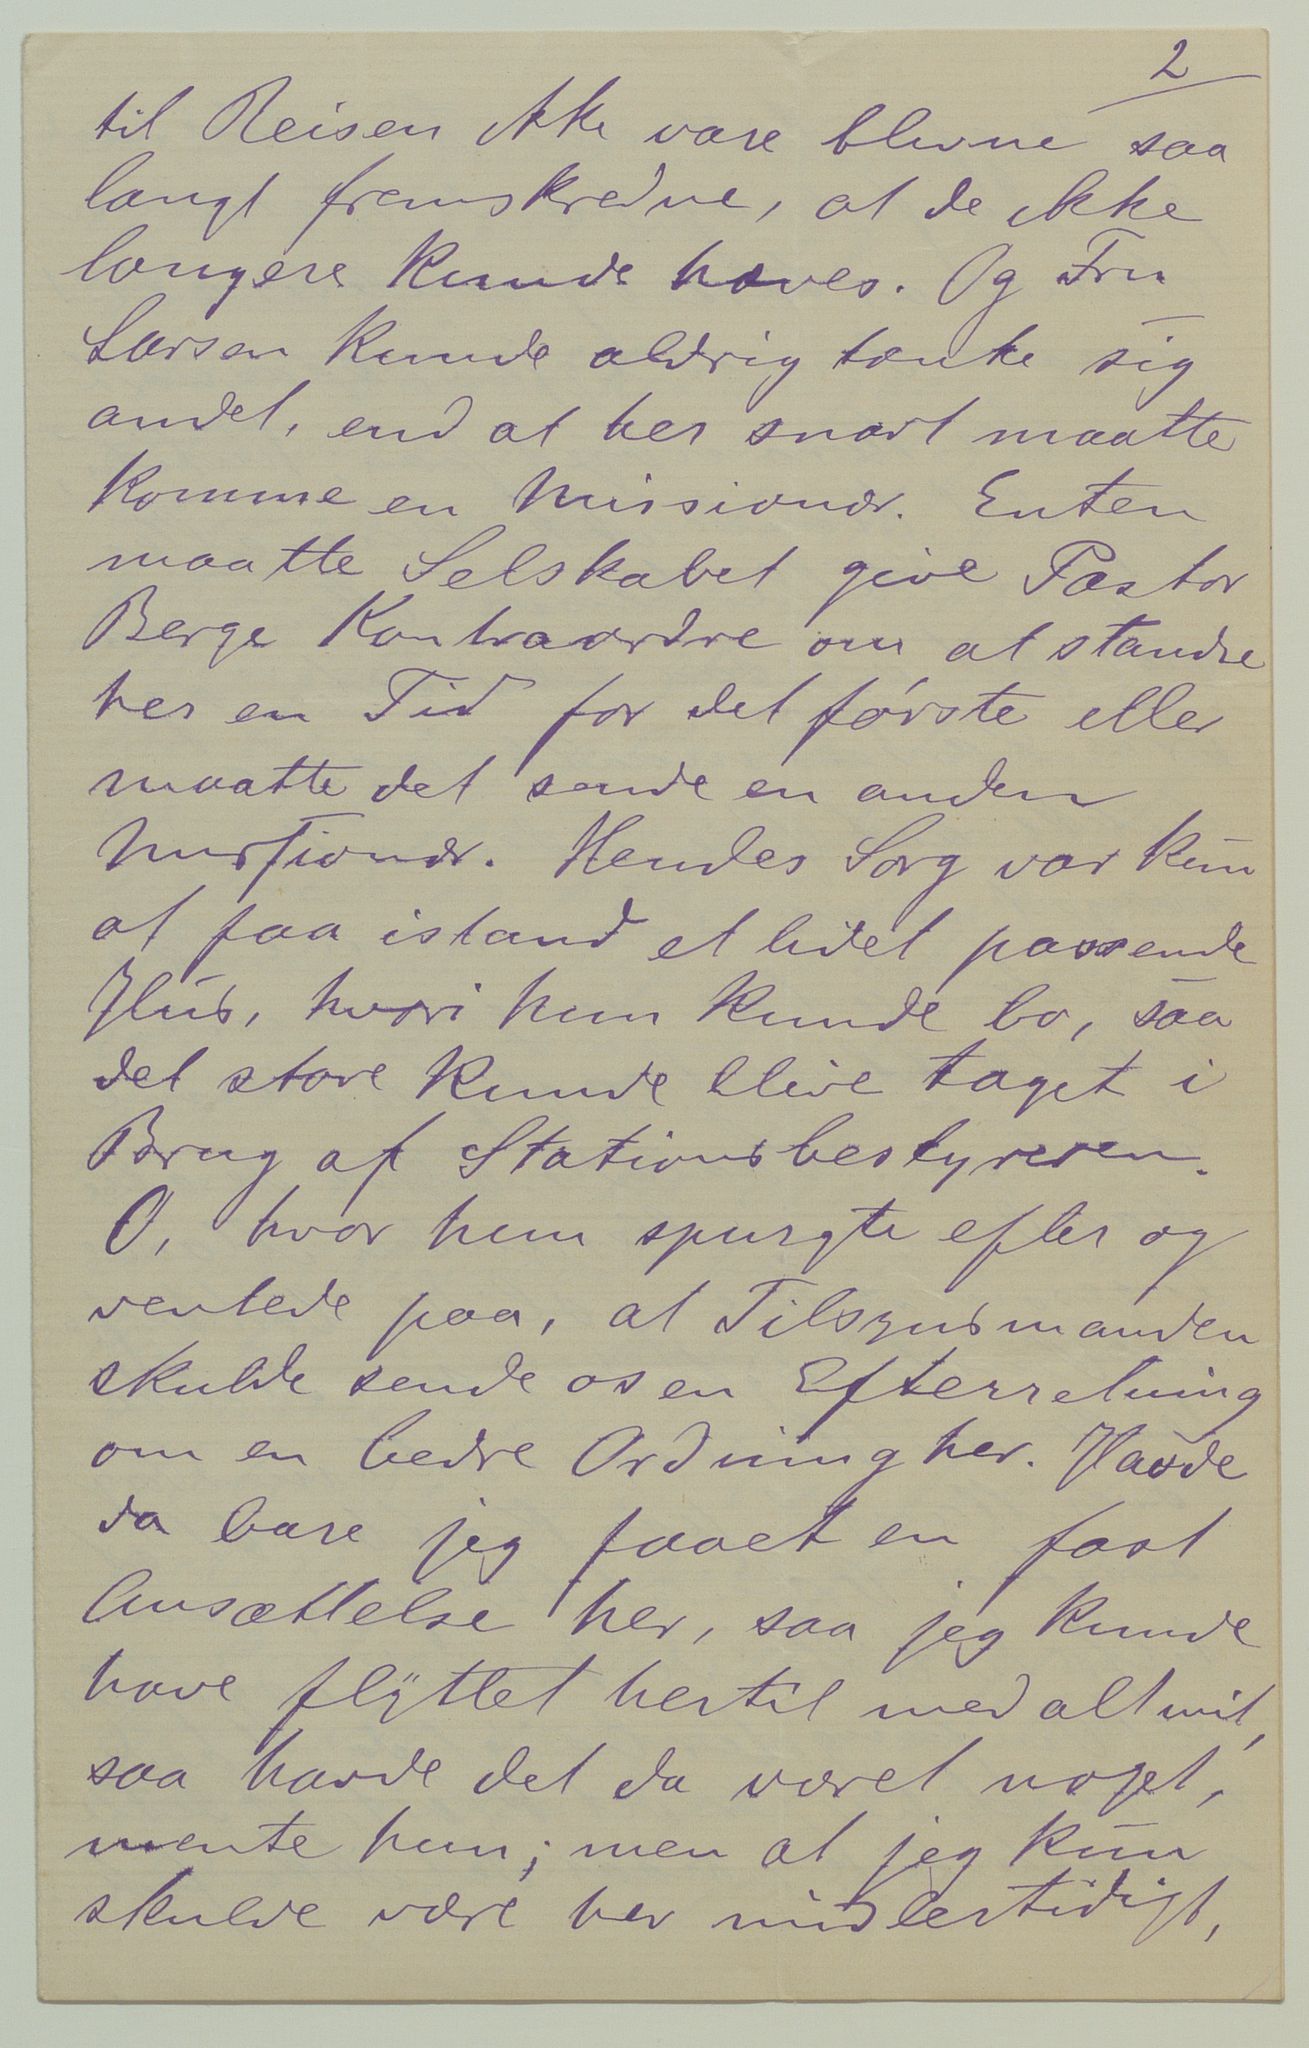 2
til Reisen ikke vare blevne saa
langt fremskredne, at de ikke
længere kunde hæves. Og Fru
Larsen kunde aldrig tænke sig
andet, end at her snart maatte
komme en Missionær. Enten
maatte Selskabet give Pastor
Berge Kontraordre om at standse
her en Tid for det første eller
maatte det sende en anden
Missionær. Hendes Sorg var kun
at faa istand et lidet passende
Hus, hvori hun kunde bo, saa
det store kunde blive taget i
Brug af Stationsbestyreren.
O, hvor hun spurgte efter og
ventede paa, at Tilsynsmanden
skulde sende os en Efterretning
om en bedre Ordning her. Havde
da bare jeg faaet en fast
Ansættelse her, saa jeg kunde
have flyttet hertil med alt mit,
saa havde det da været noget,
mente hun; men at jeg kun
skulde være her midlertidigt,